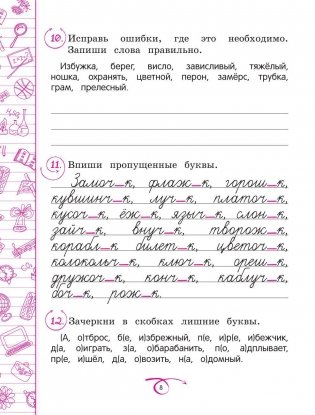 10. Исправь ошибки, где это необходимо.
Запиши слова правильно.
Избужка, берег, висло, зависливый, тяжёлый,
ношка, охранять, цветной, перон, замёрс, трубка,
грам, прелесный.
11. Впиши пропущенные буквы.
Замоч_к, флаж_к, горош_к,
кувшинч_к, луч_к, платоч_к,
кусоч_к, ёж_к, языч_к, слон_к,
зайч_к, внуч_к, творож_к,
корабл_к билет_к, цветоч_к,
колокольч_к, ключ_к, ореш_к,
дружоч_к, конч_к, каблуч_к,
боч_к, рож_к.
12. Зачеркни в скобках лишние буквы.
(А, о)тброс, б(е, и)збрежный, п(е, и)р(е, и)бежчик,
д(а, о)играть, з(а, о)барабанить, п(о, а)дплывает,
пр(е, и)шёл, д(а, о)возить, н(а, о)домный.
8